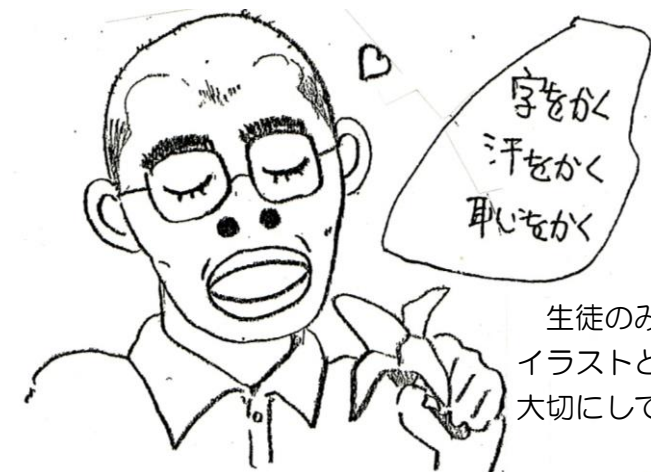 字をかく
汗をかく
恥をかく
生徒のみ
イラストと
大切にして